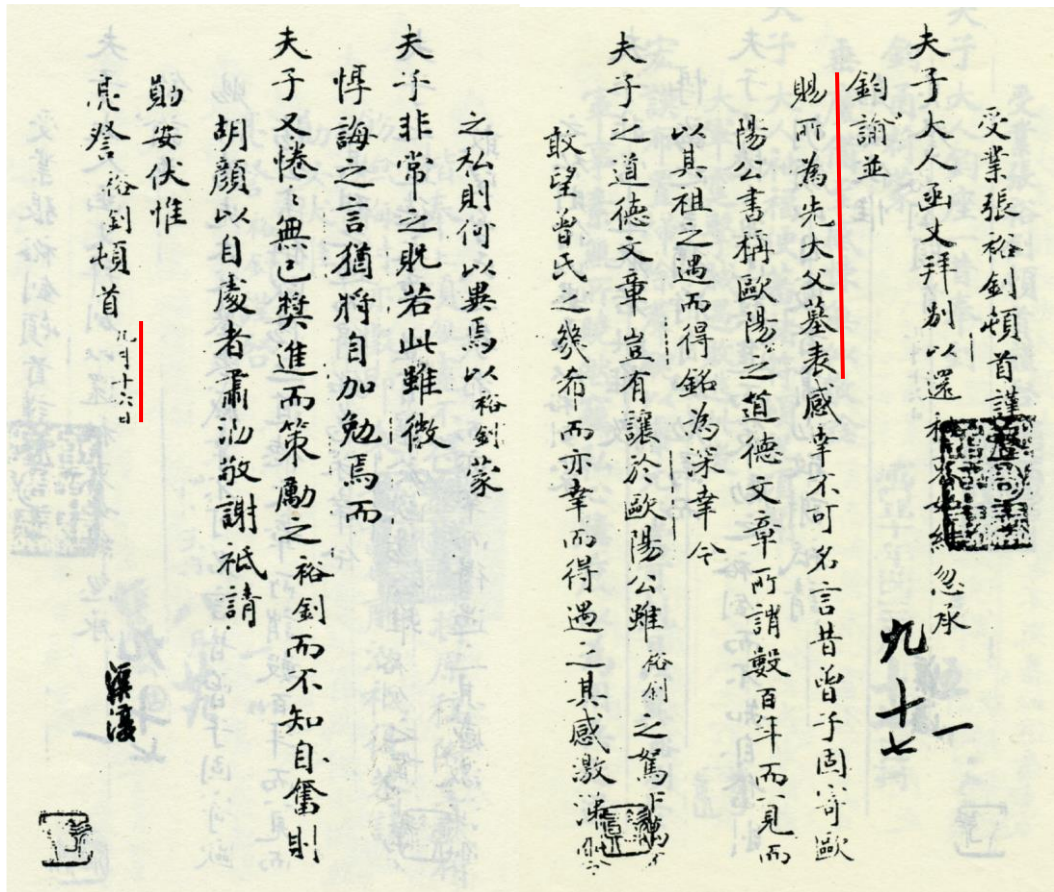 受業張裕釗頓首謹
夫子大人函丈拜別以還 忽承
鈞諭並
賜所為先大父墓表感幸不可名言昔曾子固寄歐
陽公書稱歐陽之道德文章所謂數百年而一見而
以其祖之遇而得銘為深幸今
夫子之道德文章豈有讓於歐陽公雖裕釗之駑下
敢望曾氏之幾希而亦幸而得遇之其感激
九 十七 一
之私則何以異焉以裕釗蒙
夫子非常之貺若此雖微
惇誨之言猶將自加勉焉而
夫子又惓惓無已獎進而策勵之裕釗而不知自奮則
胡顏以自處者肅泐敬謝祗請
勛安伏惟
亮詧裕釗頓首九月十六日